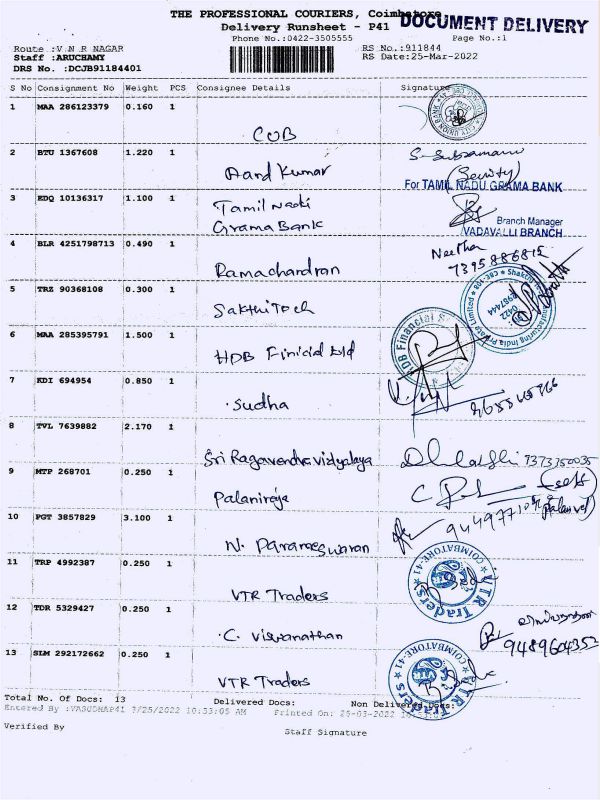 THE PROFESSIONAL COURIERS, Coimbatore
DOCUMENT DELIVERY
Delivery Runsheet - P41
Phone No.:0422-3505555
Page No.:1
Route :V N R NAGAR
RS No.:911844
Staff :ARUCHAMY
RS Date:25-Mar-2022
DRS No. :DCJB91184401
S No Consignment No Weight PCS Consignee Details Signature
1 MAA 286123379 0.160 1
COB
CITY UNION BANK
2 BTU 1367608 1.220 1
Anand Kumar
S. Subramani
(Security)
For TAMIL NADU GRAMA BANK
3 KDQ 10136317 1.100 1
Tamil Nadu
Grama Bank
Branch Manager
VADAVALLI BRANCH
4 BLR 4251798713 0.490 1
Ramachandran
Neetha
7395886815
5 TRZ 90368108 0.300 1
Sakthi Tech
Manufacturing India Private Limited
0422
6 MAA 285395791 1.500 1
HDB Finicial ltd
HDB Financial
7 KDI 694954 0.850 1
Sudha
8 TVL 7639882 2.170 1
Sri Ragavendra vidyalaya
7373750035
9 MTP 268701 0.250 1
Palaniraja
10 PGT 3857829 3.100 1
N. Parameswaran
11 TRP 4992387 0.250 1
VTR Traders
VTR Traders COIMBATORE-41
12 TDR 5329427 0.250 1
C. viswanathan
9489604352
13 SLM 292172662 0.250 1
VTR Traders
VTR Traders COIMBATORE-41
Total No. Of Docs: 13 Delivered Docs: Non Delivered Docs:
Entered By :VASUDHAP41 3/25/2022 10:33:05 AM Printed On: 25-03-2022
Verified By
Staff Signature